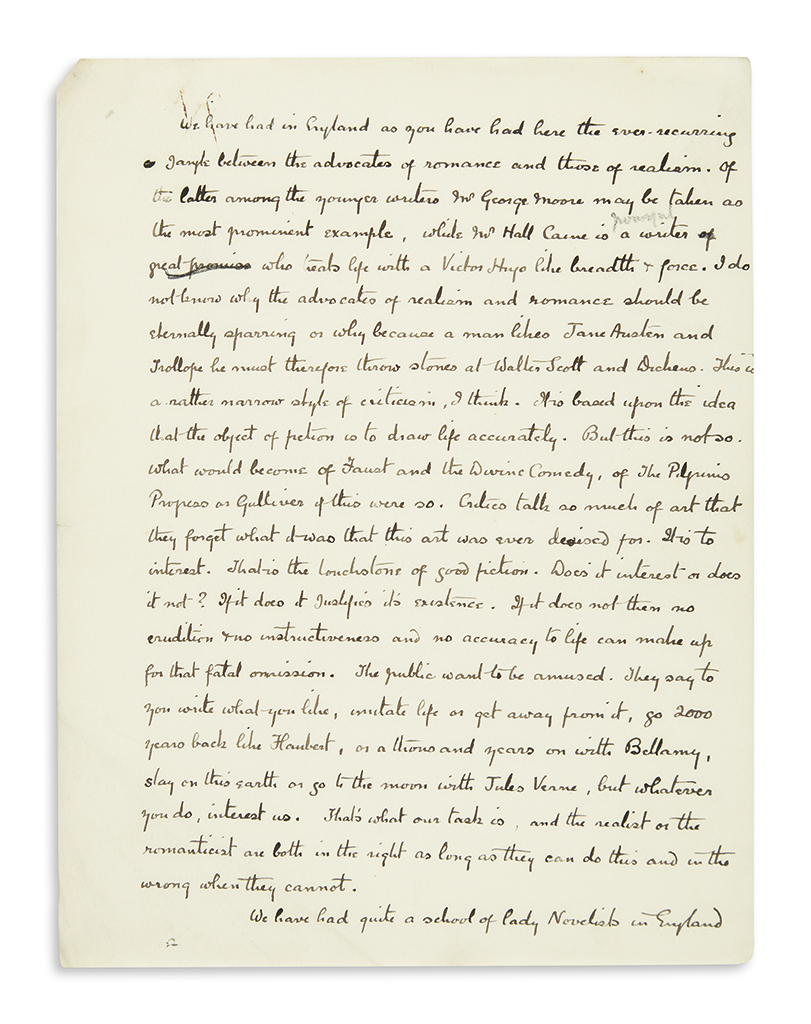 We have had in England as you have had here the ever-recurring
Jangle between the advocates of romance and those of realism. Of
the latter among the younger writers Mr George Moore may be taken as
the most prominent example, while Mr Hall Caine is a writer of
great promise who treats life with a Victor Hugo like breadth & force. I do
not know why the advocates of realism and romance should be
eternally sparring or why because a man likes Jane Austen and
Trollope he must therefore throw stones at Walter Scott and Dickens. This is
a rather narrow style of criticism, I think. It is based upon the idea
that the object of fiction is to draw life accurately. But this is not so.
What would become of Faust and the Divine Comedy, of The Pilgrims
Progress or Gulliver if this were so. Critics talk so much of art that
they forget what it was that this art was ever devised for. It is to
interest. That is the touchstone of good fiction. Does it interest or does
it not? If it does it Justifies it's existence. If it does not then no
erudition & no instructiveness and no accuracy to life can make up
for that fatal omission. The public want to be amused. They say to
you write what you like, imitate life or get away from it, go 2000
years back like Flaubert, or a thousand years on with Bellamy,
stay on this earth or go to the moon with Jules Verne, but whatever
you do, interest us. That's what our task is, and the realist or the
romanticist are both in the right as long as they can do this and in the
wrong when they cannot.
We have had quite a school of lady Novelists in England